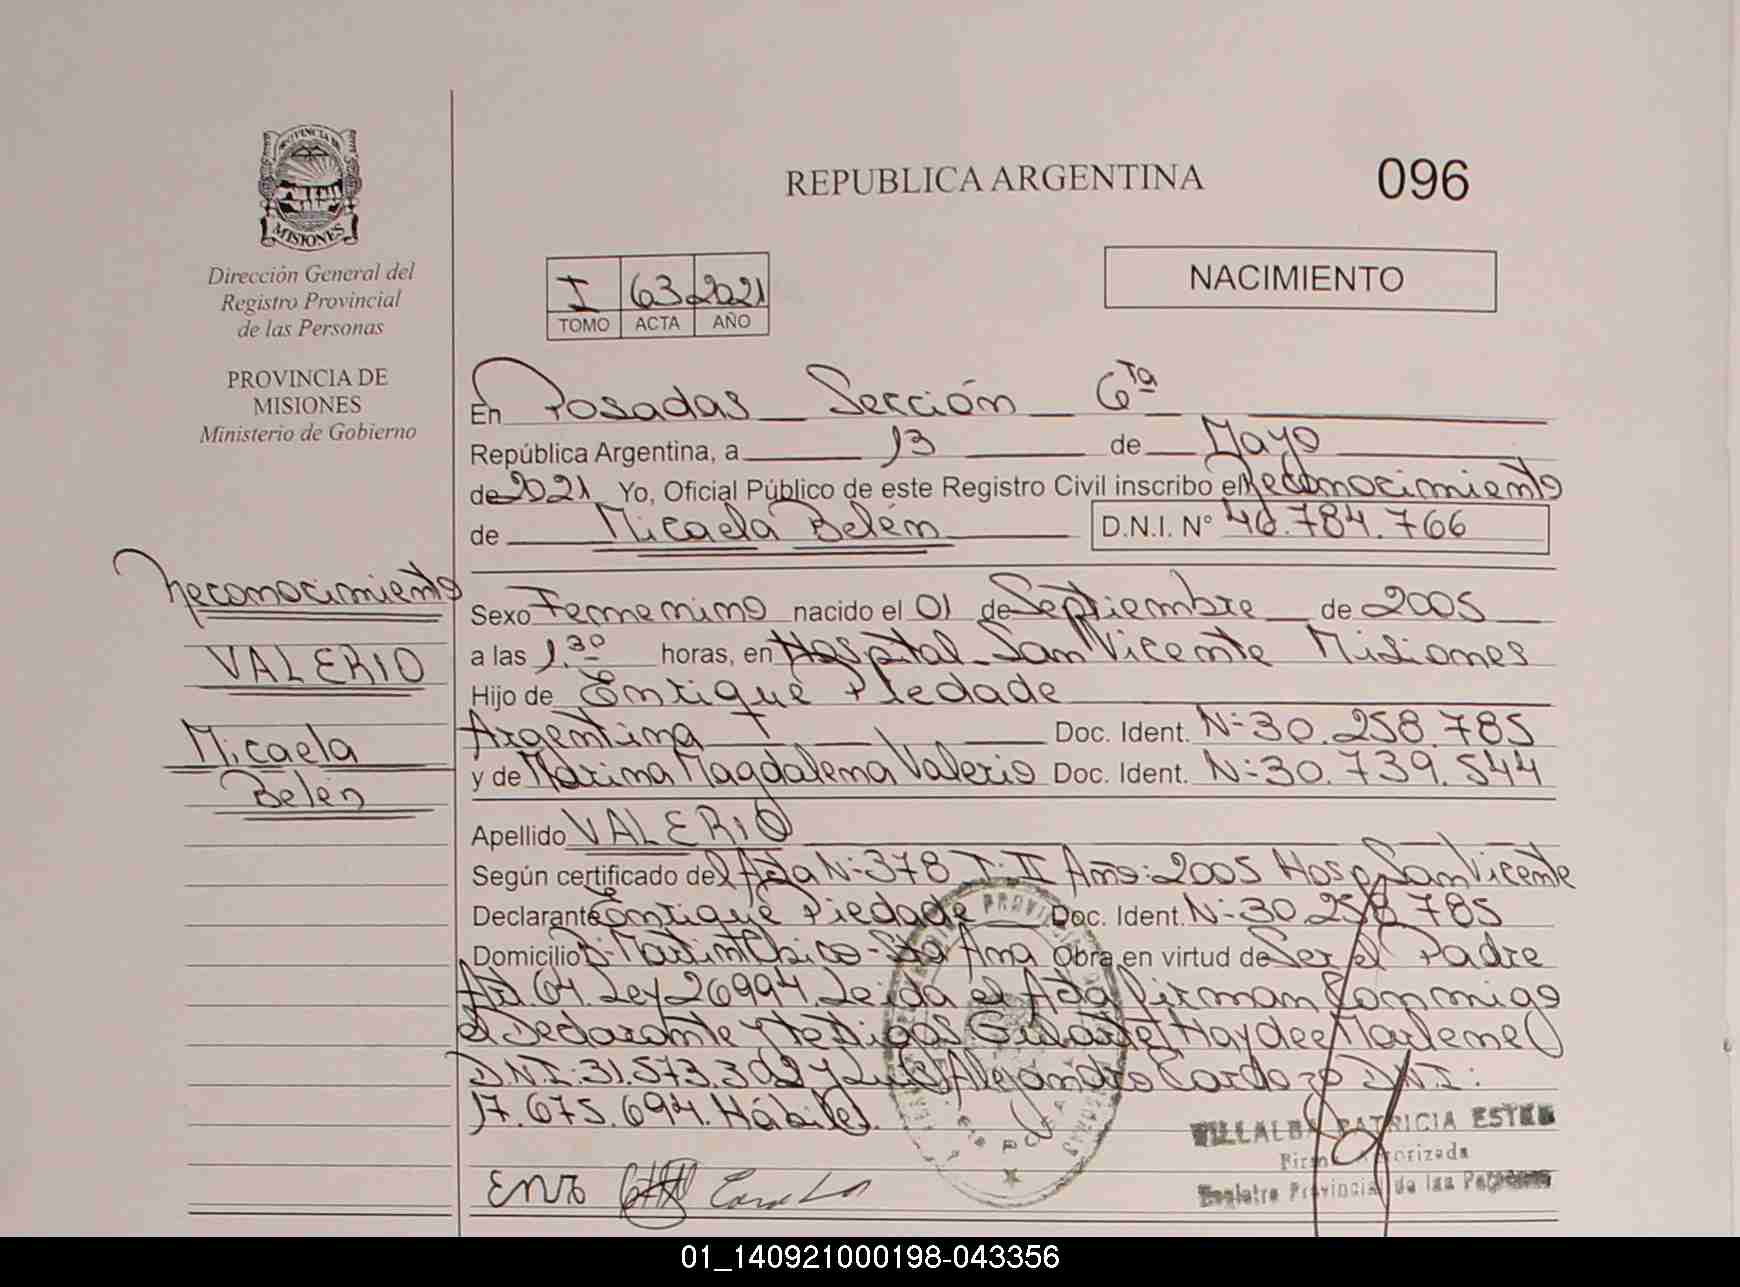 PROVINCIA DE
MISIONES
Dirección General del
Registro Provincial
de las Personas
PROVINCIA DE
MISIONES
Ministerio de Gobierno
Reconocimiento
VALERIO
Micaela
Belén
REPUBLICA ARGENTINA
096
I 63 2021
TOMO ACTA AÑO
NACIMIENTO
En Posadas Sección 6ta
República Argentina, a 13 de Mayo
de 2021 Yo, Oficial Público de este Registro Civil inscribo el Reconocimiento
de Micaela Belén D.N.I. N° 46.784.766
Sexo Femenino nacido el 01 de Septiembre de 2005
a las 1.30 horas, en Hospital San Vicente Misiones
Hijo de Enrique Piedade
Argentina Doc. Ident. N=30.258.785
y de Marina Magdalena Valerio Doc. Ident. N=30.739.544
Apellido VALERIO
Según certificado del Acta N=378 T:II Año:2005 Hosp San Vicente
Declarante Enrique Piedade Doc. Ident. N=30.258.785
Domicilio B. Martin Chico-Sta Ana Obra en virtud de Ser el Padre
Art. 64 Ley 26994. Leida el Acta firman Conmigo
el Declarante y testigos Haydee Marlene
D.N.I:31.573.302 y Luis Alejandro Cardozo D.N.I:
17.675.694. Hábiles.
VILLALBA PATRICIA ESTER
Firma Autorizada
Registro Provincial de las Personas
01_140921000198-043356